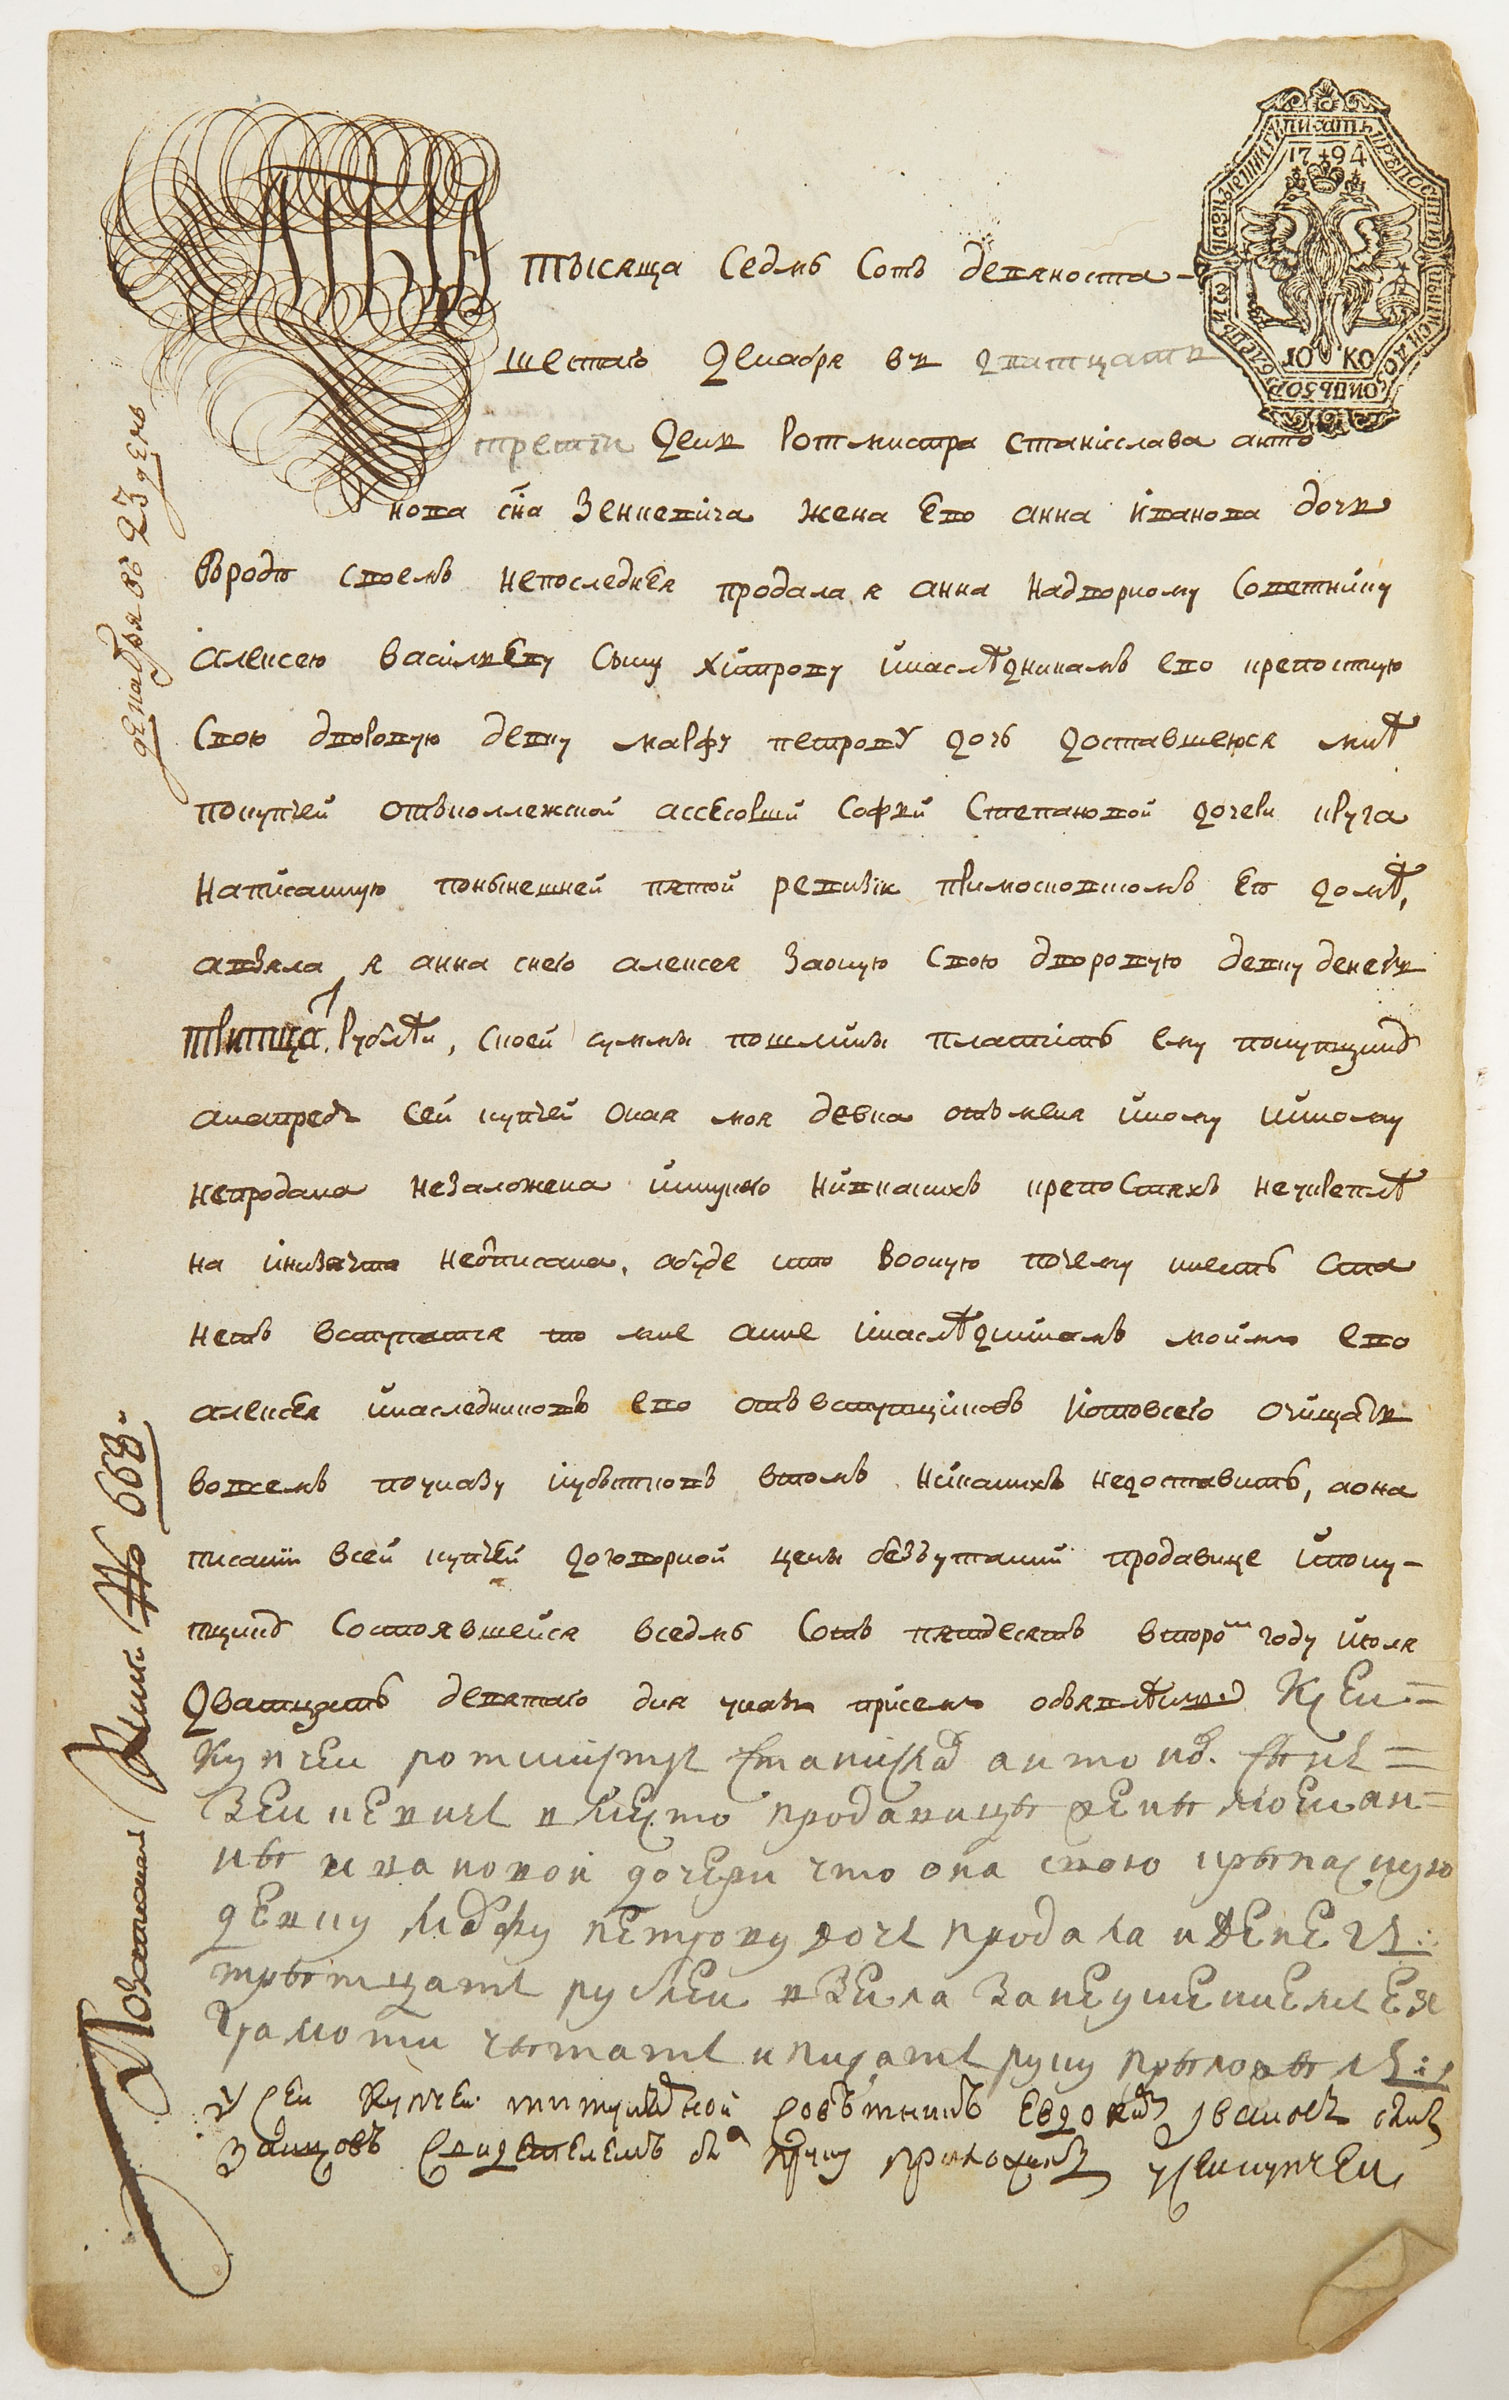 ЛѣТА тысяща Седмь Сотъ девяноста-
шестаго Декабря въ дватцать
трети День Ротмистра Станіслава анто
нова сна Зенкевича жена Ево анна іванова дочь
Вроде своемъ непоследнея продала я анна надворному Советнику
алексею васільеву сыну хітрову инаслѣдникамъ ево крепостную
Свою дворовую девку марфу петрову дочь доставшеюся мнѣ
покупчей отъколлежской ассесорши Софьи Степановой дочери круга
Написанную понынешней пятой ревизіи примосковскомъ Ево домѣ,
авзяла я анна снего алексея Заоную Свою дворовую девку денегъ
тритцать Рублѣй, скоей суммы пошлины платить ему покупщику
анапредь сей купчей Оная моя девка отъменя иному никому
непродана незаложена инукого нивкакихъ крепостяхъ неукреплѣ
на инизачто неотписана, абуде кто Вооную почему нибеть Ста
нетъ вступатся то мне анне инаслѣдникамъ моимъ ево
алексея инаследниковъ ево отъвступщиковъ иотовсего очищать
вовсемъ поуказу иубытковъ втомъ никакихъ недоставить, аона
писании всей купчей договорной цены безъутайки продавице ипоку-
пщику Состоявшейся вседмь Сотъ пятдесятъ второмъ году июля
Дватцать девятаго дня указъ присемъ объявлѣнъ Ксеи=
Купчеи ротмистръ станиславъ антоновъ сынъ=
Зенкевичь вместо продавицы жены моеи ан=
ны ивановои дочери что она свою крѣпасную
девку марфу петрову дочь продала иденегъ
трытцать рублеи взела занеумениемъ ея
Грамоти чытать иписать руку прыложылъ:
Усеи Купчеи титулярной советникъ Евдокимъ Ивановъ сынъ
Зайцовъ Свидетелемъ былъ ируку приложилъ усеикупчеи
декабря въ 23 день
1794
10 КО